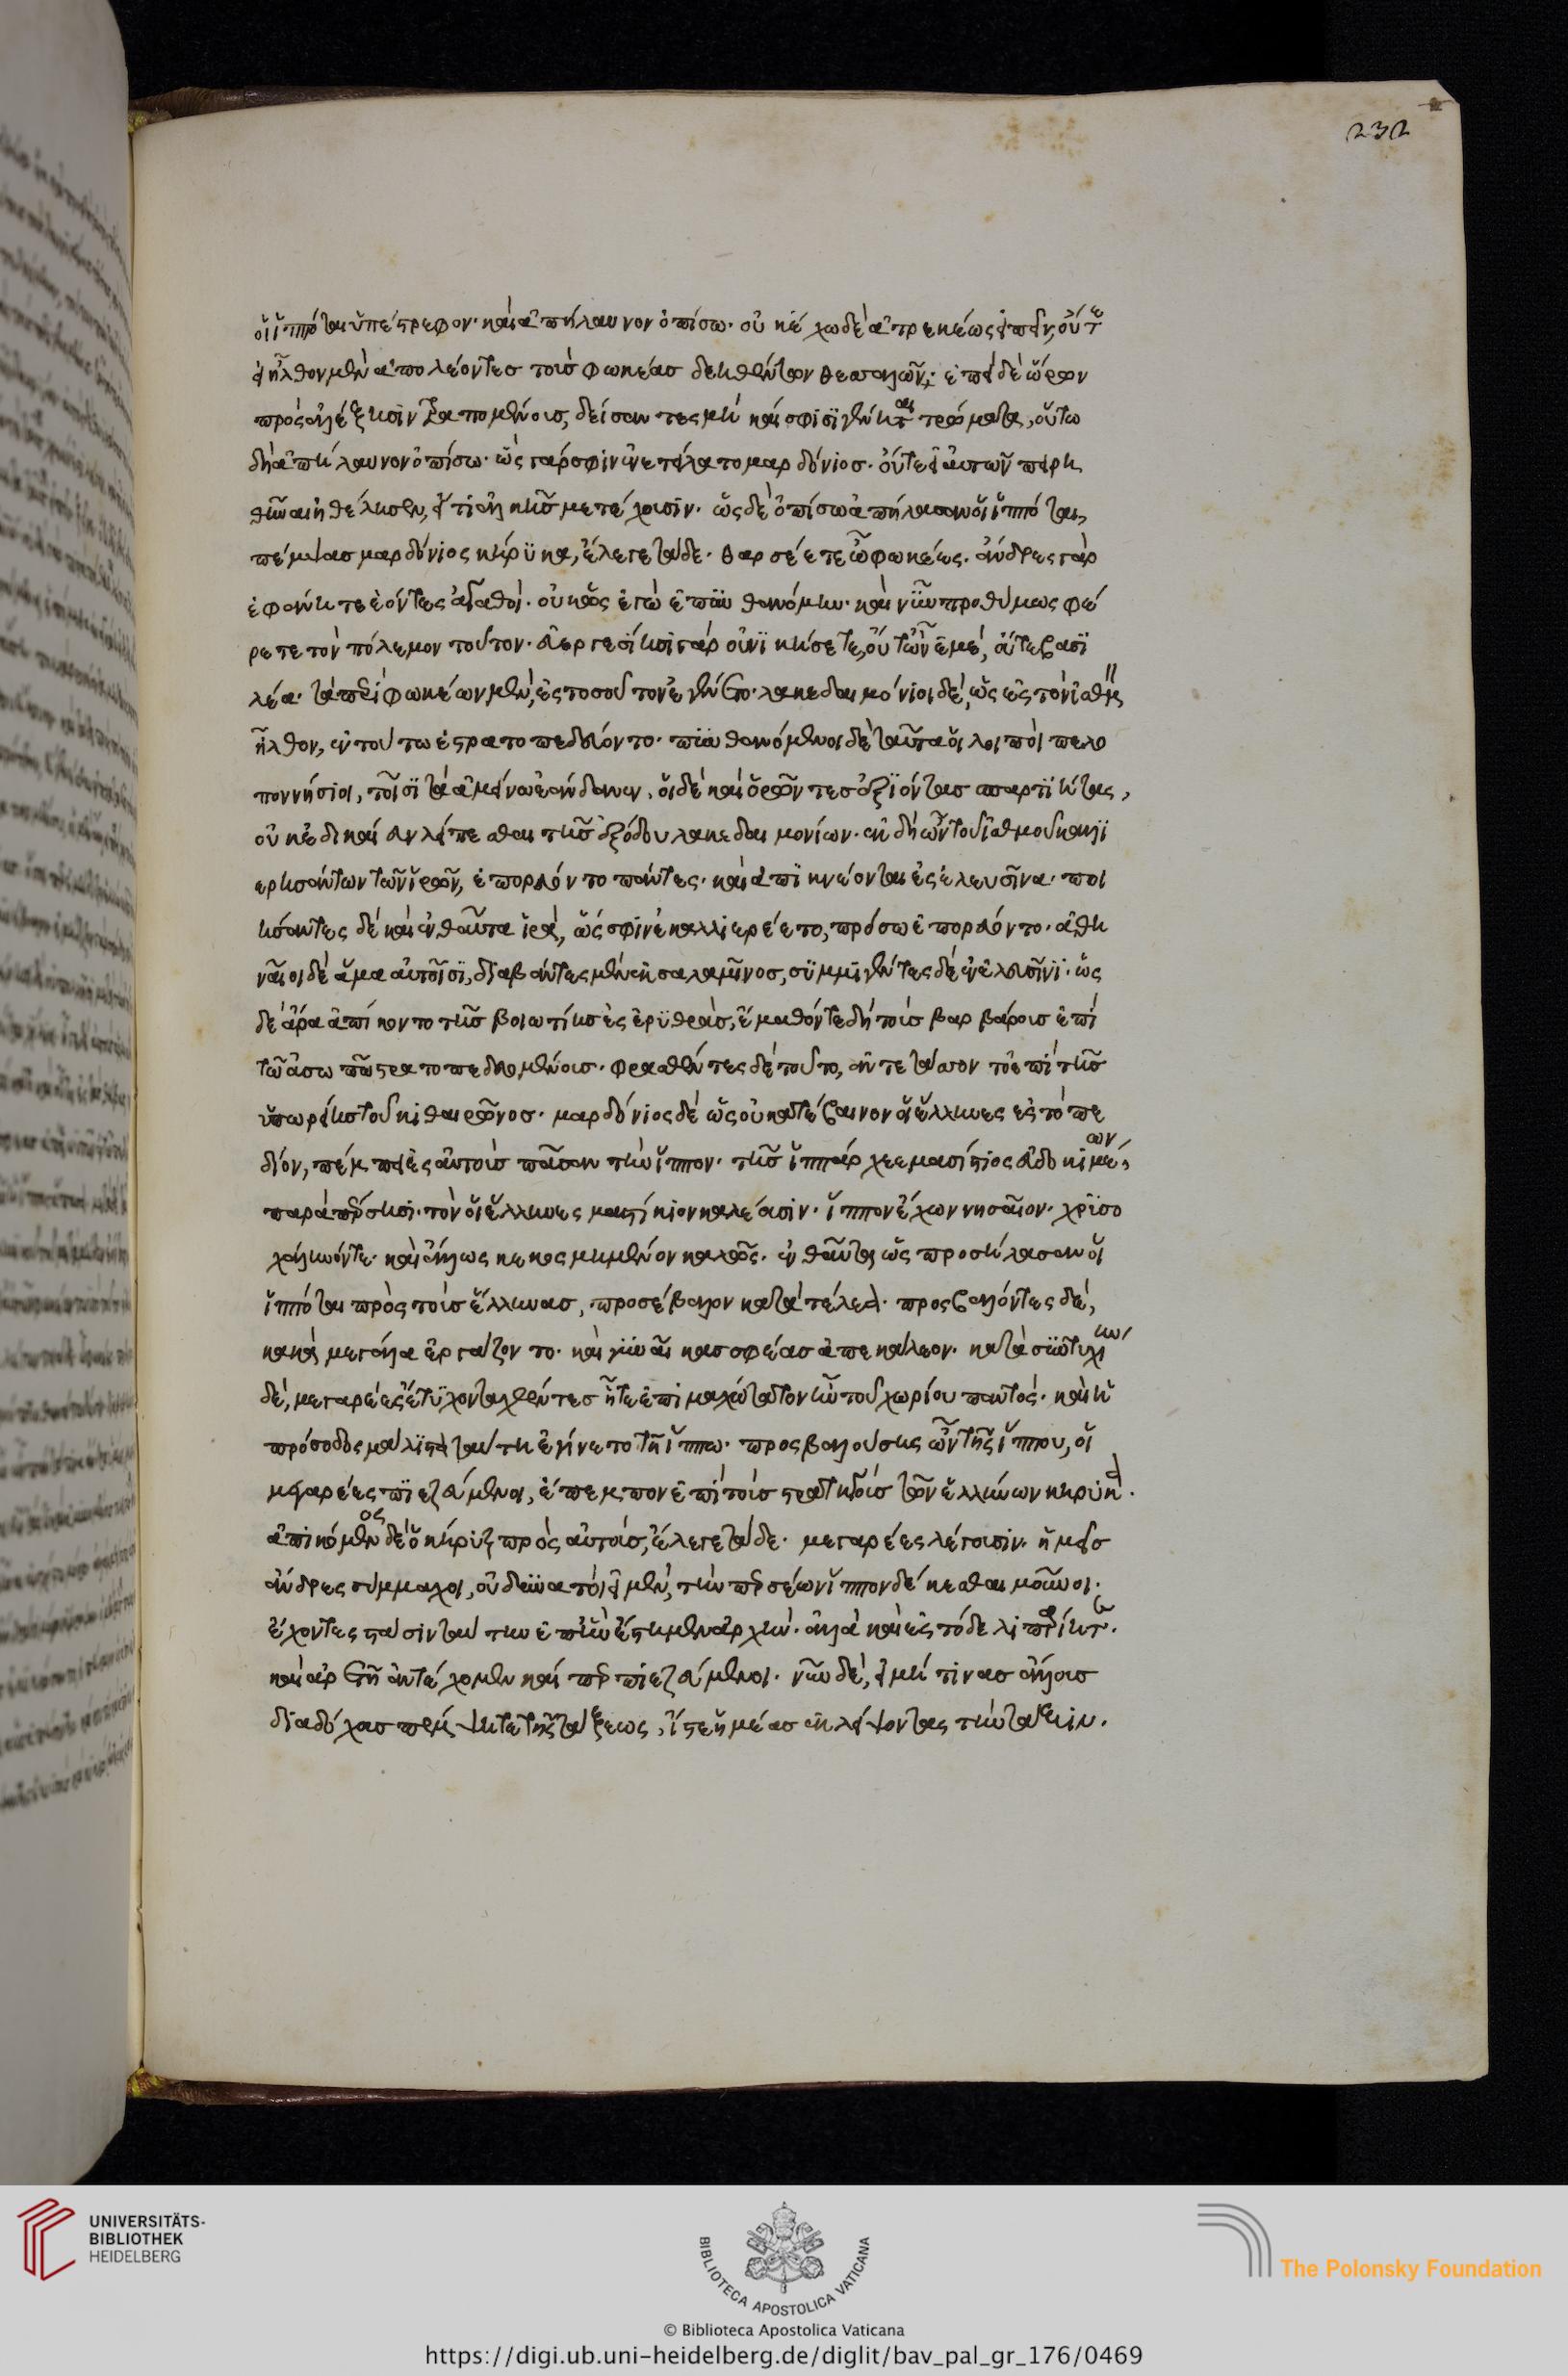 οἱ ἱππόται ὑπέστρεφον· καὶ ἀπήλαυνον ὀπίσω· οὐκ ἔχω δὲ ἀτρεκέως εἰπεῖν, οὔτε
εἰ ἦλθον μὲν ἀπολέοντες τοὺς φωκέας δεηθέντων θεσσαλῶν· ἐπεὶ δὲ ὥρων
πρὸς ἀλέξησιν τραπομένους, δείσαντες μὴ καὶ σφίσι γένηται τρώματα, οὕτω
δὴ ἀπήλαυνον ὀπίσω· ὣς γάρ σφιν ἐνετείλατο μαρδόνιος· οὔτε εἰ αὐτῶν πειρη
θῆναι ἠθέλησεν, εἴ τι ἀλκῆς μετέχουσιν· ὡς δὲ ὀπίσω ἀπήλασαν οἱ ἱππόται,
πέμψας μαρδόνιος κήρυκα, ἔλεγε τάδε· θαρσέετε ὦ φωκέες· ἄνδρες γὰρ
ἐφάνητε ἐόντες ἀγαθοί· οὐκ ὡς ἐγὼ ἐπυνθανόμην· καὶ νῦν προθύμως φέ
ρετε τὸν πόλεμον τοῦτον· εὐεργεσίησι γὰρ οὐ νικήσετε, οὔτ' ὦν ἐμέ, οὔτε βασι
λέα· τὰ περὶ φωκέων μέν, ἐς τοσοῦτον ἐγένετο· λακεδαιμόνιοι δέ, ὡς ἐς τὸν ἰσθμὸν
ἦλθον, ἐν τούτω ἐστρατοπεδεύοντο· πυνθανόμενοι δὲ ταῦτα οἱ λοιποὶ πελο
ποννήσιοι, τοῖσι τὰ ἀμείνω ἑάνδανεν, οἱ δὲ καὶ ὁρῶντες ἐξιόντας σπαρτιήτας,
οὐκ ἐδικαίευν λείπεσθαι τῆς ἐξόδου λακεδαιμονίων· ἐκ δὴ ὦν τοῦ ἰσθμοῦ καλλι
ερησάντων τῶν ἱρῶν, ἐπορεύοντο πάντες· καὶ ἀπικνέονται ἐς ἐλευσῖνα· ποι
ήσαντες δὲ καὶ ἐνθαῦτα ἱρά, ὥς σφιν ἐκαλλιερέετο, πρόσω ἐπορεύοντο· ἀθη
ναῖοι δὲ ἅμα αὐτοῖσι, διαβάντες μὲν ἐκ σαλαμῖνος, συμμιγέντες δὲ ἐν ἐλευσῖνι· ὡς
δὲ ἄρα ἀπίκοντο τῆς βοιωτίης ἐς ἐρυθράς, ἔμαθόν τε δὴ τοὺς βαρβάρους ἐπὶ
τῶ ἀσωπῶ στρατοπεδευομένους· φρασθέντες δὲ τοῦτο, ἀντετάσσοντο ἐπὶ τῆς
ὑπωρέης τοῦ κιθαιρῶνος· μαρδόνιος δὲ ὡς οὐ κατέβαινον οἱ ἕλληνες ἐς τὸ πε
δίον, πέμπει ἐς αὐτοὺς πᾶσαν τὴν ἵππον· τῆς ἱππάρχεε μασίστιος εὐδοκιμέων
παρὰ πέρσησι· τὸν οἱ ἕλληνες μακίστιον καλέουσιν· ἵππον ἔχων νησαῖον· χρυσο
χάλινόν τε· καὶ ἄλλως κεκοσμημένον καλῶς· ἐνθαῦτα ὡς προσήλασαν οἱ
ἱππόται πρὸς τοὺς ἕλληνας, προσέβαλλον κατὰ τέλεα· προσβάλλοντες δέ,
κακὰ μεγάλα ἐργάζοντο· καὶ γυναῖκας σφέας ἀπεκάλεον· κατὰ συντυχίην
δέ, μεγαρέες ἔτυχον ταχθέντες ἧτε ἐπιμαχώτατον ἦν τοῦ χωρίου παντός· καὶ ἡ
πρόσοδος μάλιστα ταύτη ἐγίνετο τῆ ἵππω· προσβαλλούσης ὦν τῆς ἵππου, οἱ
μεγαρέες πιεζεύμενοι, ἔπεμπον ἐπὶ τοὺς στρατηγοὺς τῶν ἑλλήνων κήρυκα·
ἀπικόμενος δὲ ὁ κήρυξ πρὸς αὐτούς, ἔλεγε τάδε· μεγαρέες λέγουσιν· ἡμεῖς
ἄνδρες σύμμαχοι, οὐ δυνατοί εἰμεν, τὴν περσέων ἵππον δέκεσθαι μοῦνοι·
ἔχοντες στάσιν ταύτην ἐπ' ἣν ἔστημεν ἀρχήν· ἀλλὰ καὶ ἐς τόδε λιπαρίη τε
καὶ ἀρετῆ ἀντέχομεν καίπερ πιεζεύμενοι· νῦν δέ, εἰ μή τινας ἄλλους
διαδόχους πέμψητε τῆς τάξεως, ἴστε ἡμέας ἐκλείψοντας τὴν τάξιν.
232
UNIVERSITÄTS-
BIBLIOTHEK
HEIDELBERG
BIBLIOTECA APOSTOLICA VATICANA
The Polonsky Foundation
© Biblioteca Apostolica Vaticana
https://digi.ub.uni-heidelberg.de/diglit/bav_pal_gr_176/0469